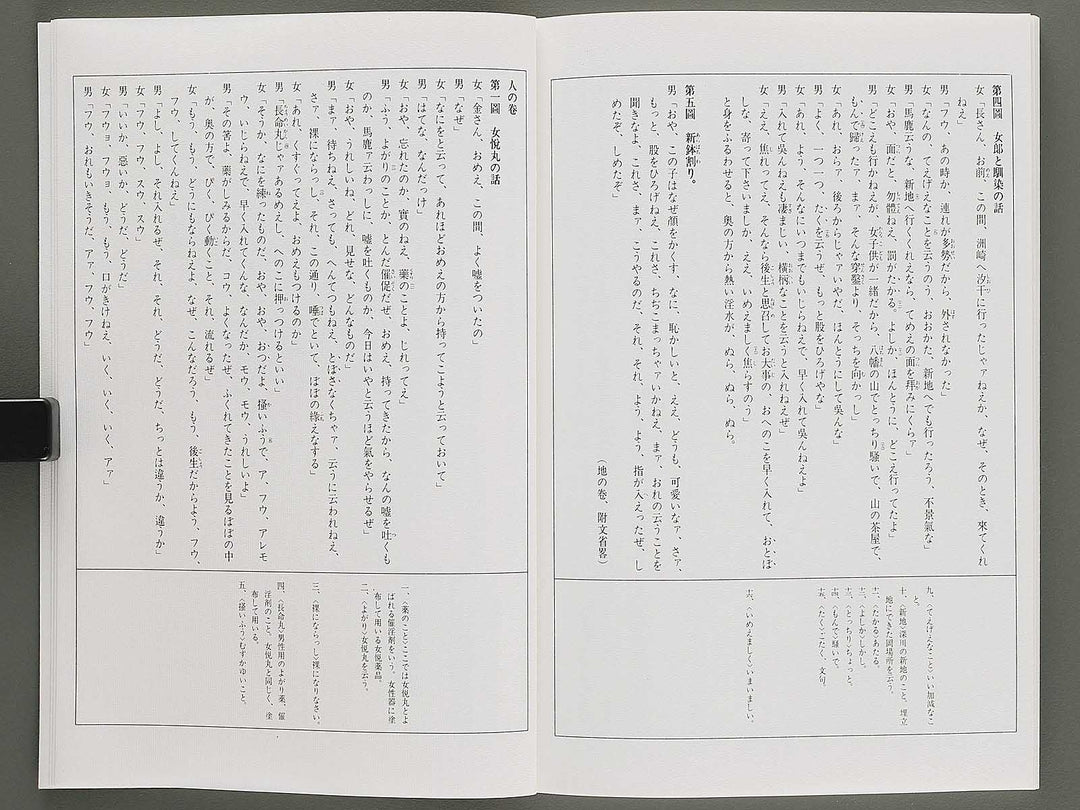 第四圖　女郎と馴染の話
女「長さん、お前、この間、洲崎へ汐干に行ったじゃァねえか、なぜ、そのとき、來てくれ
ねえ」
男「フウ、あの時か、連れが多勢だから、外されなかった」
女「なんの、てえげえなことを云うのう、おおかた、新地へでも行ったろう、不景氣な」
男「馬鹿云うな、新地へ行くくれえなら、てめえの面を拜みにくらァ」
女「おや、面だと、勿體ねえ、罰がたかる。よしか、ほんとうに、どこえ行ってたよ」
男「どこえも行かねえが、女子供が一緒だから、八幡の山でとっちり騒いで、山の茶屋で、
もんで歸ったァ、まァ、そんな穿鑿より、そっちを向かっし」
女「あれ、おらァ、後ろからじゃァいやだ、ほんとうにして呉んな」
男「よく、一つ一つ、たくを云うぜ、もっと股をひろげやな」
女「あれ、よう、そんなにいつまでもいじらねえで、早く入れて呉んねえよ」
男「入れて呉んねえも凄まじい、橫柄なことを云うと入れねえぜ」
女「ええ、焦れってえ、そんなら後生と思召してお大事の、おへのこを早く入れて、おとぼ
しな、寄って下さいましか、ええ、いめえましく焦らすのう」
と身をふるわせると、奧の方から熱い淫水が、ぬら、ぬら、ぬら。
（地の卷、附文省畧）
九、〈てえげえなこと〉いい加減なこ
と。
十、〈新地〉深川の新地のこと、埋立
地にできた岡場所を云う。
十一、〈たかる〉あたる。
十二、〈よしか〉しかし。
十三、〈とっちり〉ちょっと。
十四、〈もんで〉騒いで。
十五、〈たく〉ごたく、文句。
十六、〈いめえましく〉いまいましい。
人の卷
第一圖　女悅丸の話
女「金さん、おめえ、この間、よく嘘をついたの」
男「なぜ」
女「なにをと云って、あれほどおめえの方から持ってこようと云っておいて」
男「はてな、なんだっけ」
女「おや、忘れたのか、實のねえ、藥のことよ、じれってえ」
男「ふう、よがりのことか、とんだ催促だぜ、おめえ、持ってきたから、なんの嘘を吐くも
のか、馬鹿ァ云わっしに、嘘を吐くものか、今日はいやと云うほど氣をやらせるぜ」
女「おや、うれしいね、どれ、見せな、どんなものだ」
男「まァ、待ちねえ、さっても、へんてつもねえ、とぼさなくちゃァ、云うに云われねえ、
さァ、裸にならっし、それ、この通り、唾でといて、ぼぼの緣えなする」
女「あれ、くすぐってえよ、おめえもつけるのか」
男「長命丸じゃァあるめえし、へのこに押っつけるといい」
女「そうか、なにを練ったものだ、おや、おや、おつだよ、搔いふうで、ア、フウ、アレモ
ウ、いじらねえで、早く入れてくんな、なんだか、モウ、モウ、うれしいよ」
男「その筈よ、藥がしみるからだ、コウ、よくなったぜ、ふくれてきたことを見るぼぼの中
が、奧の方で、びく、びく動くこと、それ、流れるぜ」
女「もう、もう、どうにもならねえよ、なぜ、こんなだろう、もう、後生だからよう、フウ、
フウ、してくんねえ」
男「よし、よし、それ入れるぜ、それ、それ、どうだ、どうだ、ちっとは違うか、違うか」
女「フウ、フウ、スウ、スウ」
男「いいか、惡いか、どうだ、どうだ」
女「フウョ、フウョ、もう、もう、口がきけねえ、いく、いく、いく、アァ」
男「フウ、おれもいきそうだ、アァ、フウ、フウ」
一、〈藥のこと〉ここでは女悅丸とよ
ばれる催淫劑をいう。女性器に塗
布して用いる女悅藥品。
二、〈よがり〉女悅丸を云う。
三、〈裸にならっし〉裸になりなさい。
四、〈長命丸〉男性用のよがり藥、催
淫劑のこと。女悅丸と同じく、塗
布して用いる。
五、〈搔いふう〉むずかゆいこと。